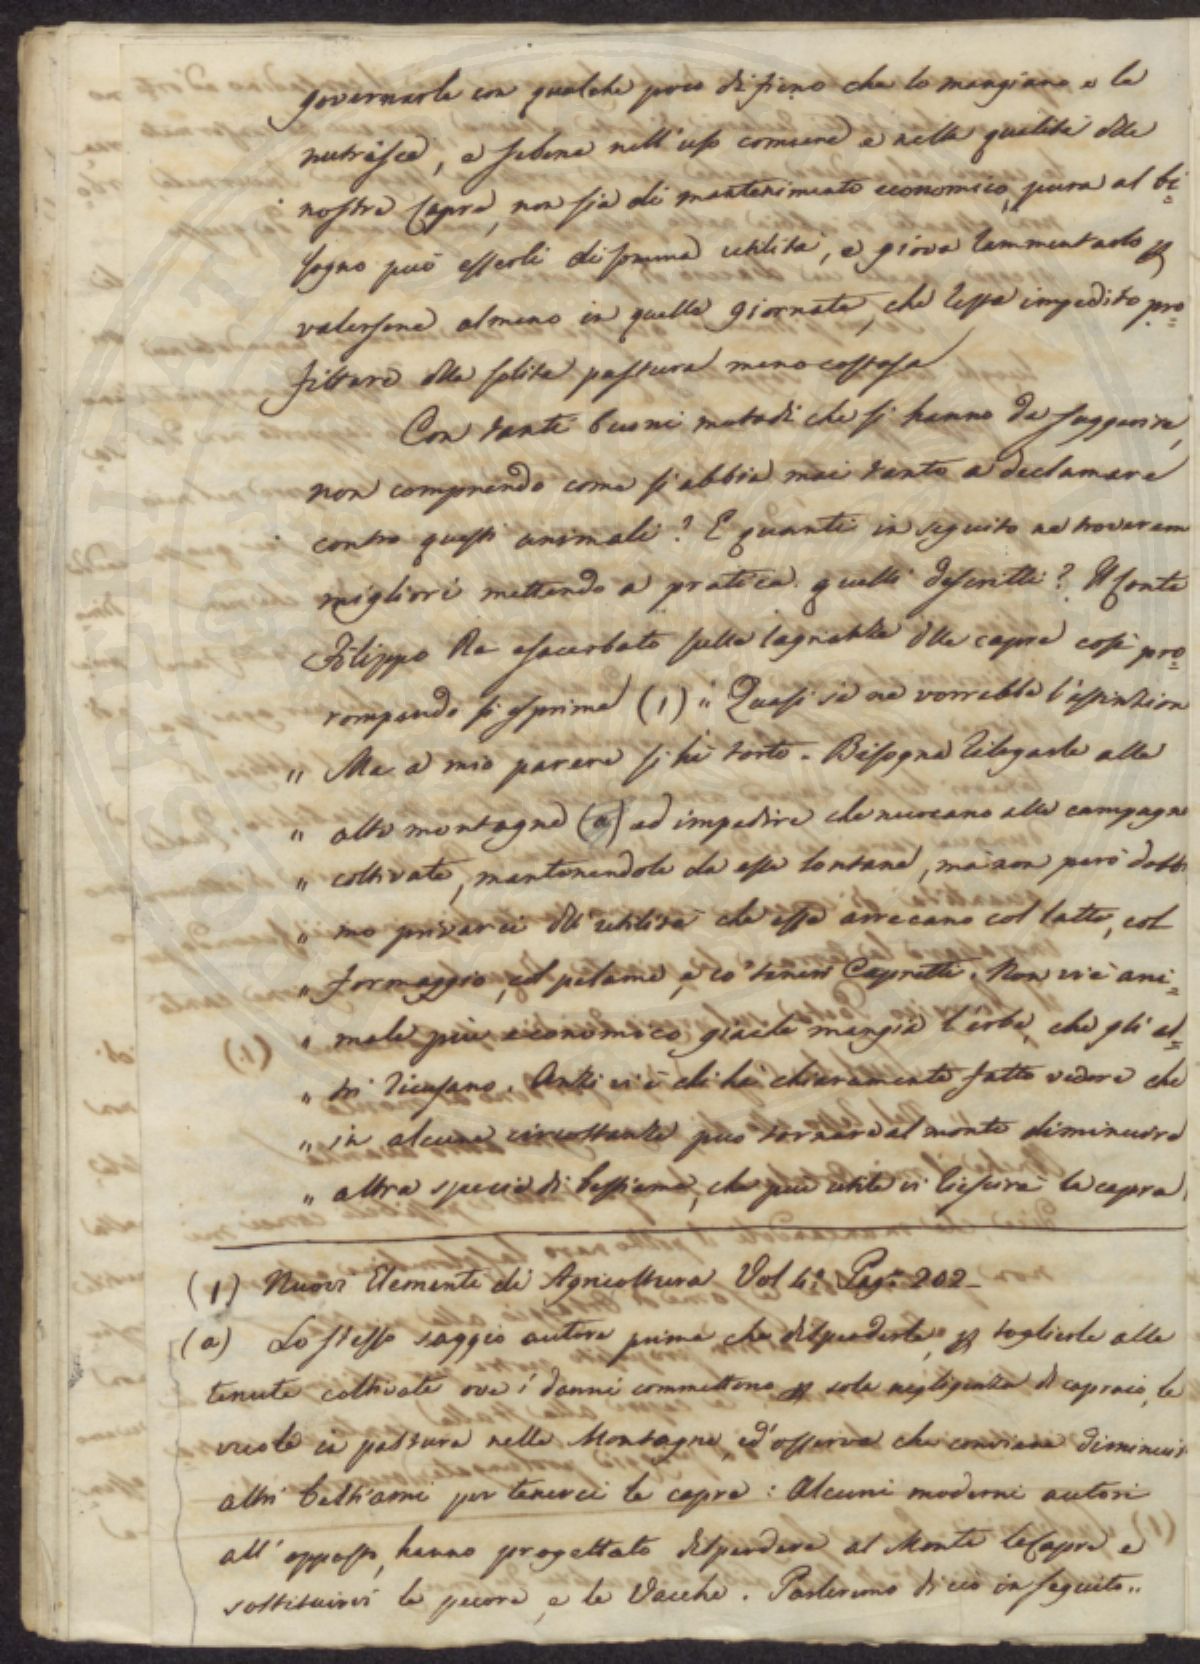 governarle con qualche poco di fieno che lo mangiano e le
nutrisce, e sebene nell'uso comune e nella qualità delle
nostre Capre, non sia di mantenimento economico, pure al bi=
sogno può esserli di somma utilità, e giova rammentarlo p
valersene almeno in quelle giornate, che resta impedito pro=
fittare della solita pastura meno costosa
Con tanti buoni metodi che si hanno da suggerire,
non comprendo come si abbia mai tanto a declamare
contro questi animali? E quanti in seguito ne troverem
migliori mettendo a pratica quelli descritti? Il Conte
Filippo Re esacerbato sulle lagnanze delle capre così pro=
rompendo si esprime (1) " Quasi se ne vorrebbe l'estinzion
" Ma a mio parere si hà torto. Bisogna rilegarle alle
" alte montagne (a) ed impedire che nuocano alle campagne
" coltivate, mantenendole da esse lontane, mà non però dobbi
" mo privarci dell'utilità che esse arrecano col latte, col
" formaggio, col pelame, e co' teneri Capretti. Non vi è ani=
" male più economico, giacchè mangia l'erbe, che gli al=
" tri ricusano. Anzi vi è chi hà chiaramente fatto vedere che
" in alcune circostanze può tornare al monte diminuire
" altra specie di bestiame, che più utile vi riescirà la capra
(1) Nuovi Elementi di Agricoltura Vol 4.° Pag.a 202_
(a) Lo stesso saggio autore prima che disperderle, p toglierle alle
tenute coltivate ove i danni commettono p sola negligenza di capraio, le
vuole in pastura nelle Montagne, ed osserva che conviene diminuir
altri bestiami per tenerci le capre: Alcuni moderni autori
all'opposto, hanno progettato disperdere al Monte le Capre e
sostituirvi le pecore, e le Vacche. Parleremo di ciò in seguito..